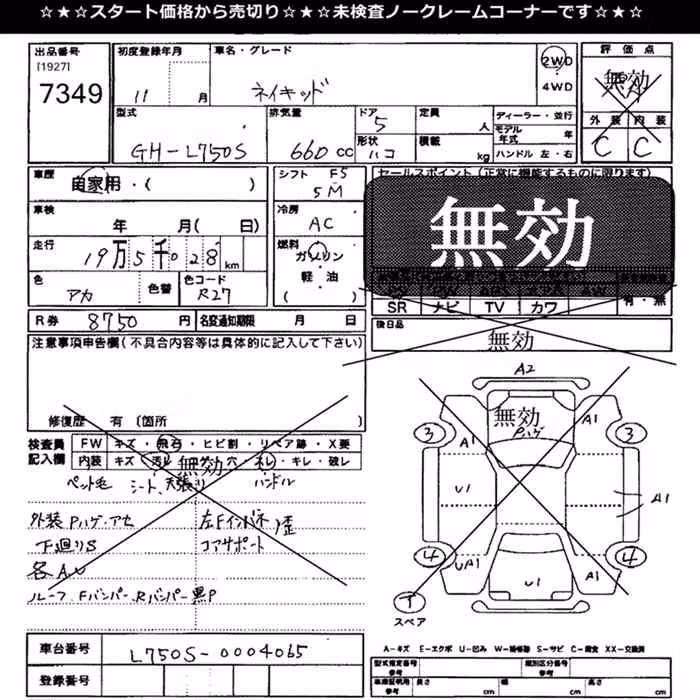 ☆★☆スタート価格から売切り☆★☆未検査ノークレームコーナーです☆★☆
出品番号
[1927]
7349
初度登録年月
11 月
車名・グレード
ネイキッド
2WD
・
4WD
評価点
無効
外装 内装
C C
型式
GH-L750S
排気量
660 cc
ドア
5
形状
ハコ
定員
人
積載
kg
ディーラー・並行
モデル年式 年
ハンドル 左・右
車歴
自家用・( )
車検
年 月( 日)
走行
19万5千028 km
色
アカ
色替
色コード
R27
シフト F5
5M
冷房
AC
燃料
ガソリン
軽・油
( )
セールスポイント(正常に機能するものに限ります)
無効
SR ナビ TV カワ
有・無
後日品
無効
R券 8750 円 名変通知期限 月 日
注意事項申告欄(不具合内容等は具体的に記入して下さい)
修復歴 有〔箇所 〕
検査員
記入欄
FW キズ・飛石・ヒビ割・リペア跡・X要
内装 キズ 穴・ネレ・キレ・破レ
無効
ペット毛 シート、天張り ハンドル
外装Pハゲ・アセ
下廻りS
各AU
ルーフ、Fバンパー、Rバンパー黒P
コアサポート
歪
A2
無効
Pハゲ
A1
A1
3
3
U1
A1
4
4
UA1
A1
U1
スペア
A-キズ E-エクボ U-凹み W-補修跡 S-サビ C-腐食 XX-交換済
車台番号
L750S-0004065
登録番号
型式指定番号
参考
類別区分番号
参考
車庫証明用
参考
長さ cm
幅 cm
高さ cm